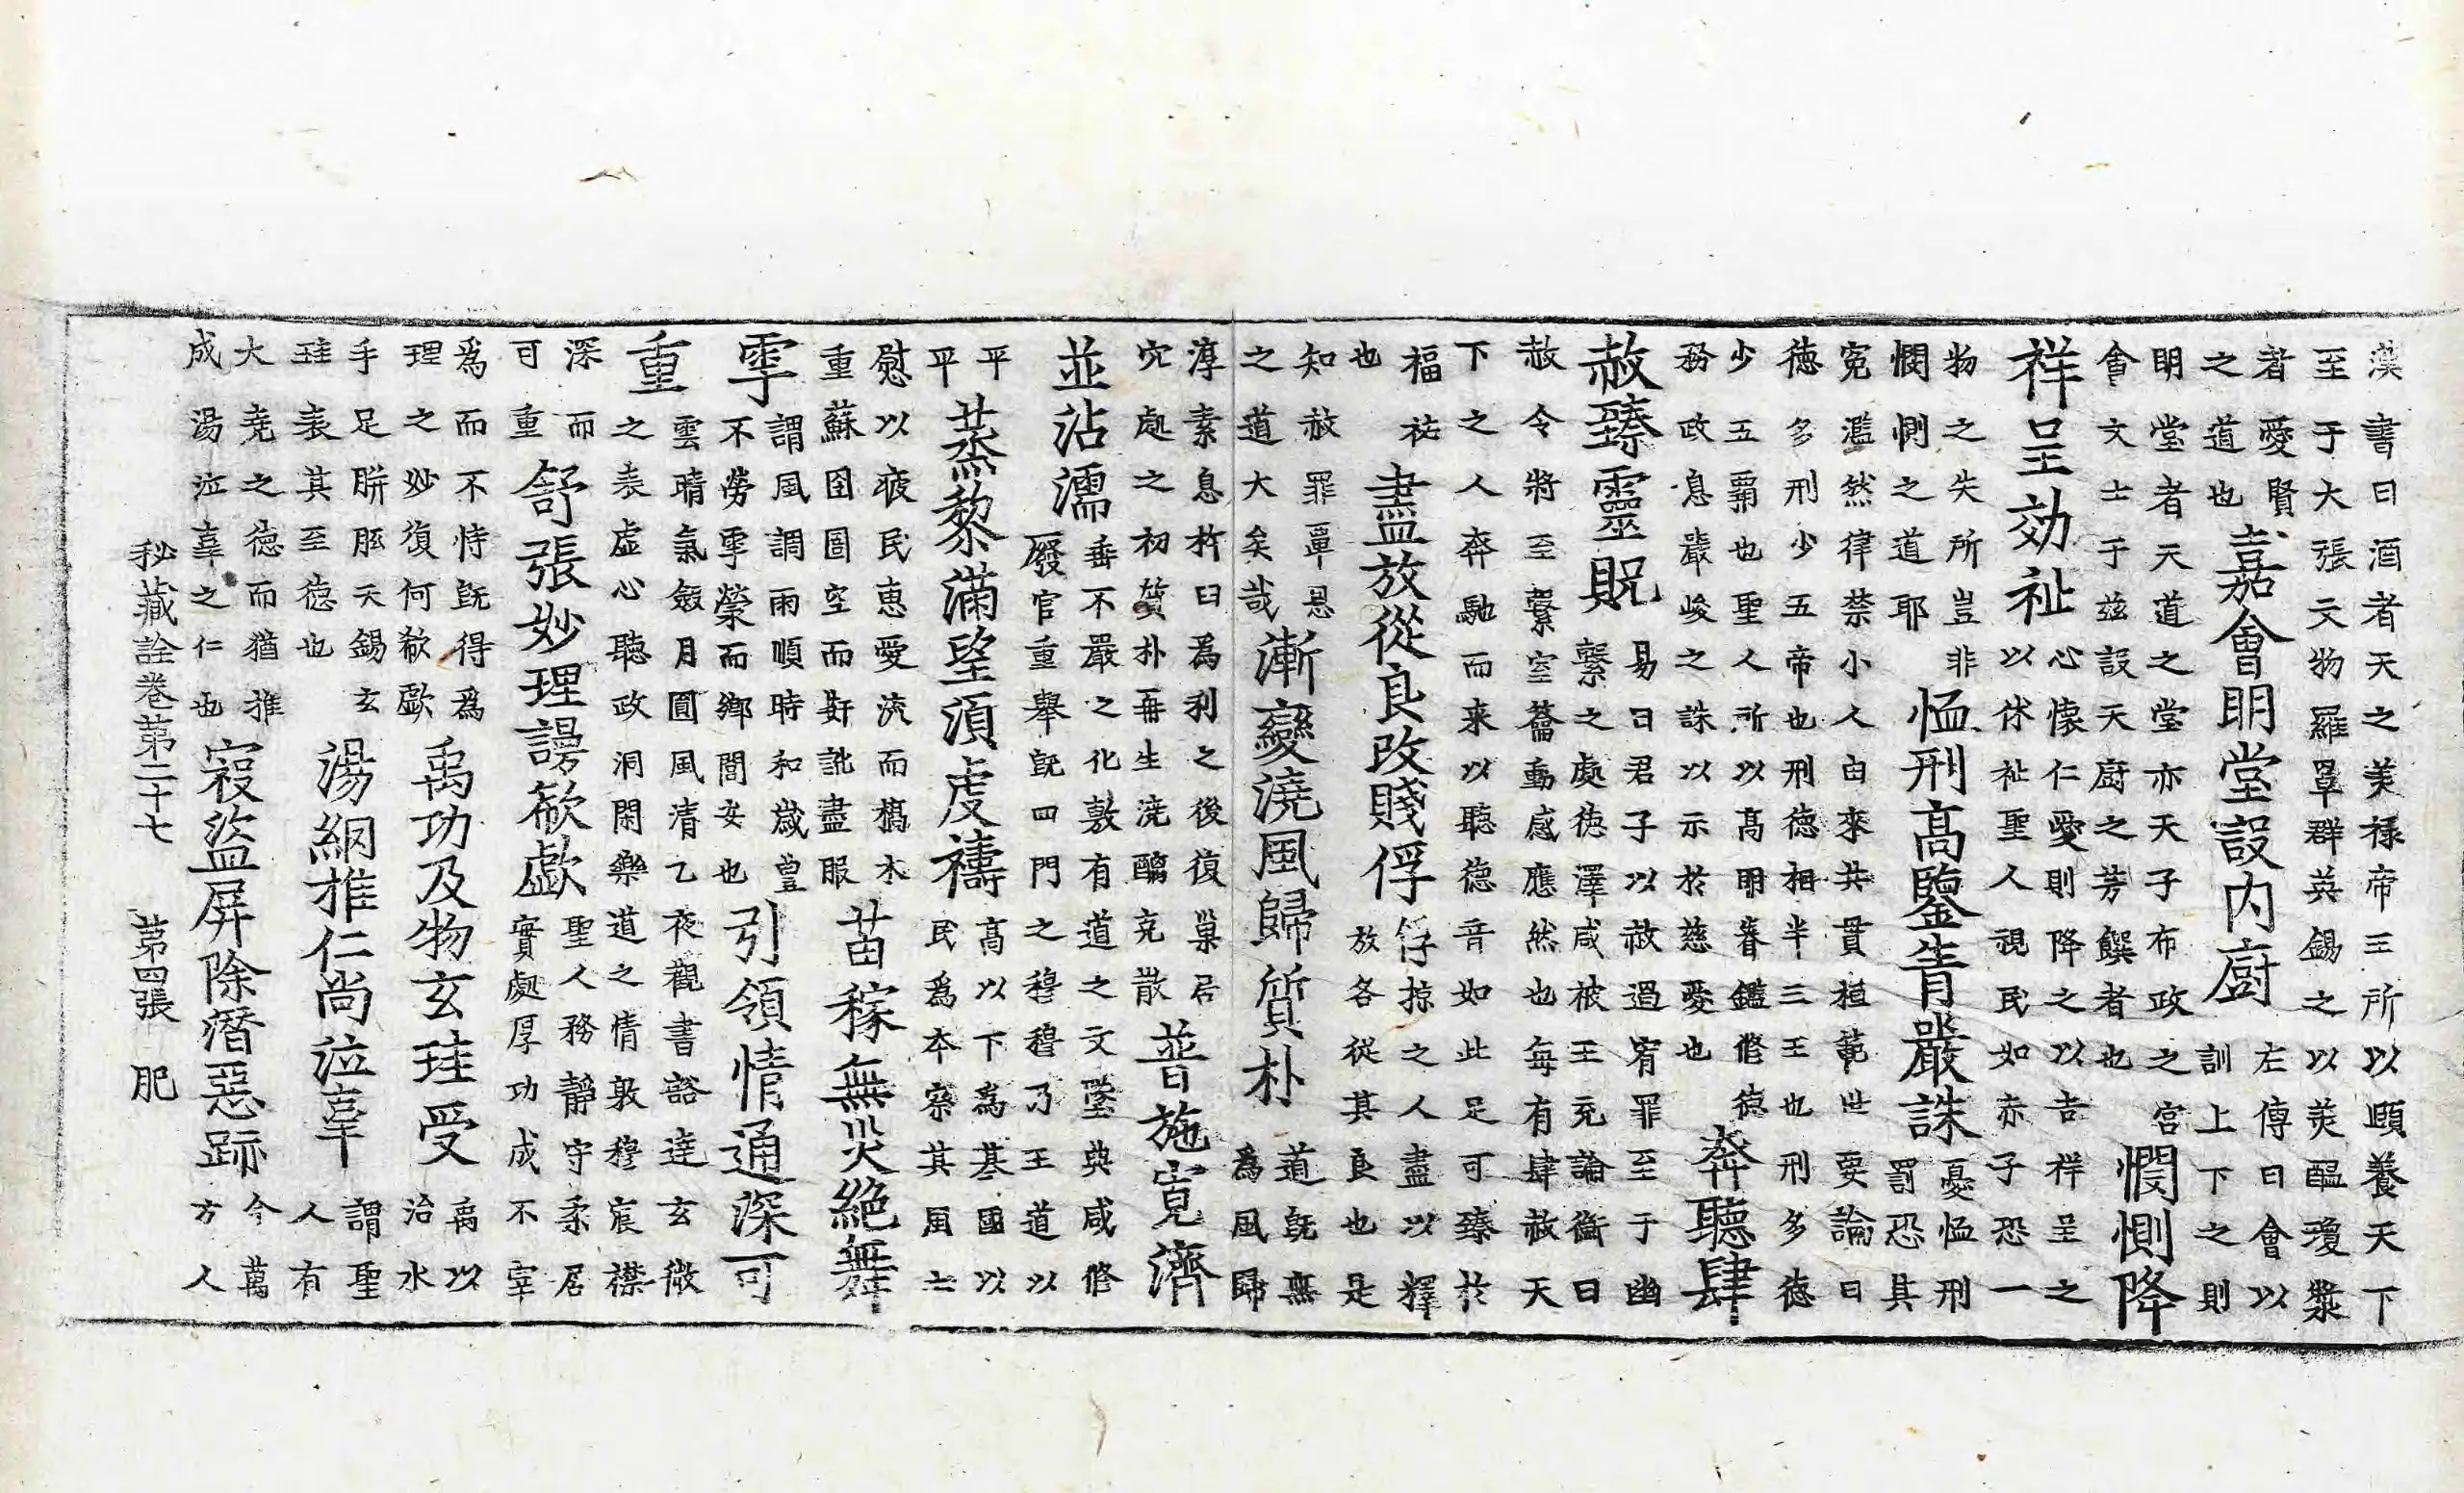 漢書曰酒者天之美祿帝王所以頤養天下
至于大張文物羅罩群英錫之以羙醖瓊漿
者愛賢
之道也
嘉會明堂設内廚
左傳曰會以
訓上下之則
明堂者天道之堂亦天子布政之宮
會文士于兹設天廚之芳饌者也
憫惻降
祥呈効祉
心懷仁愛則降之以吉祥呈之
以休祉聖人視民如赤子恐一
物之失所豈非
憫惻之道耶
恤刑髙鑒眚嚴誅
憂恤刑
罰恐其
寃濫然律禁小人由來共貫植範世要論曰
徳多刑少五帝也刑徳相半三王也刑多徳
少五覇也聖人所以髙明眷鑑修徳
務政息嚴峻之誅以示於慈愛也
奔聽肆
赦臻靈貺
易曰君子以赦過宥罪至于幽
繫之處徳澤咸被王充論衡曰
赦令將至繫室籥動感應然也每有肆赦天
下之人奔馳而來以聽徳音如此足可臻於
福祐
也
盡放從良改賤俘
俘掠之人盡以釋
放各從其良也是
知赦罪單恩
之道大矣哉
漸變澆風歸質朴
道旣無
爲風歸
淳素息於曰爲利之後復巢居
穴處之初質朴再生澆醨克散
普施寛濟
並沾濡
垂不嚴之化敷有道之文墜典咸修
廢官重舉旣四門之穆穆乃王道以
平
平
蒸黎滿望湏虔禱
髙以下爲基國以
民爲本察其風土
慰以疲民恵愛流而槁木
重蘇囹圄空而姧訛盡服
苗稼無災絶舞
雩
謂風調雨順時和歳豊
不勞雩禜而鄉閭安也
引領情通深可
重
雲晴氣斂月圓風清乙夜觀書豁達玄微
之表虚心聽政洞閑樂道之情敦穆宸襟
深而
可重
舒張妙理謾欷歔
聖人務靜守柔居
實處厚功成不宰
爲而不恃旣得爲
理之妙復何欷歔
禹功及物玄珪受
禹以
治水
手足胼胝天錫玄
珪表其至徳也
湯網推仁尚泣辜
謂聖
人有
大堯之徳而猶推
成湯泣辜之仁也
寇盜屏除潛惡跡
今萬
方人
秘藏詮卷第二十七 第四張 肥